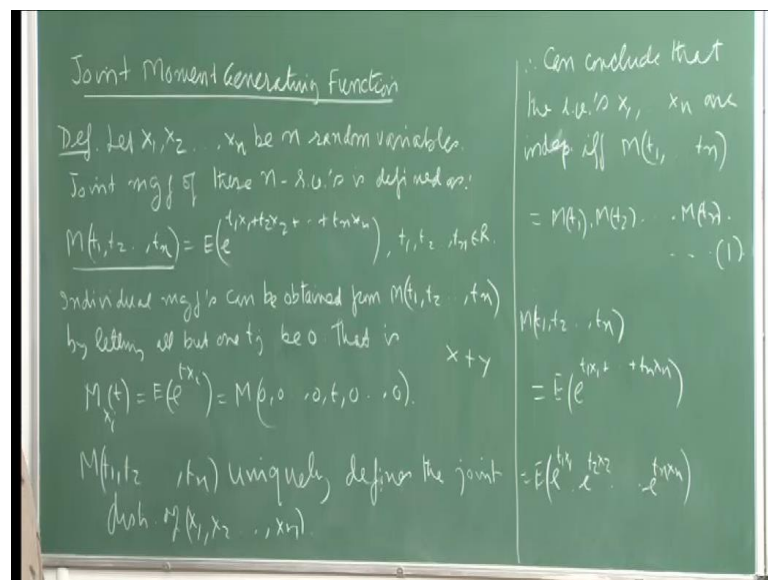 Joint Moment Generating Function
Def. Let x₁, x₂ . . , xₙ be n random variables.
Joint mgf of these n-r.v.'s is defined as:
M(t₁, t₂ . . , tₙ) = E(e^{t₁x₁+t₂x₂+ . . +tₙxₙ}), t₁, t₂ . , tₙ ∈ R.
Individual mgf's can be obtained from M(t₁, t₂ . . , tₙ)
by letting all but one tj be 0. That is
x + y
M_{xᵢ}(t) = E(e^{txᵢ}) = M(0, 0 . , 0, t, 0 . . , 0).
M(t₁, t₂ , tₙ) uniquely defines the joint
distn. of (x₁, x₂ . . , xₙ).
∴ Can conclude that
the r.v.'s x₁, xₙ are
indep. iff M(t₁, tₙ)
= M(t₁). M(t₂) . . . M(tₙ).
. . . (1)
M(t₁, t₂ . . , tₙ)
= E(e^{t₁x₁+ +tₙxₙ})
= E(e^{t₁x₁} . e^{t₂x₂} . . e^{tₙxₙ})